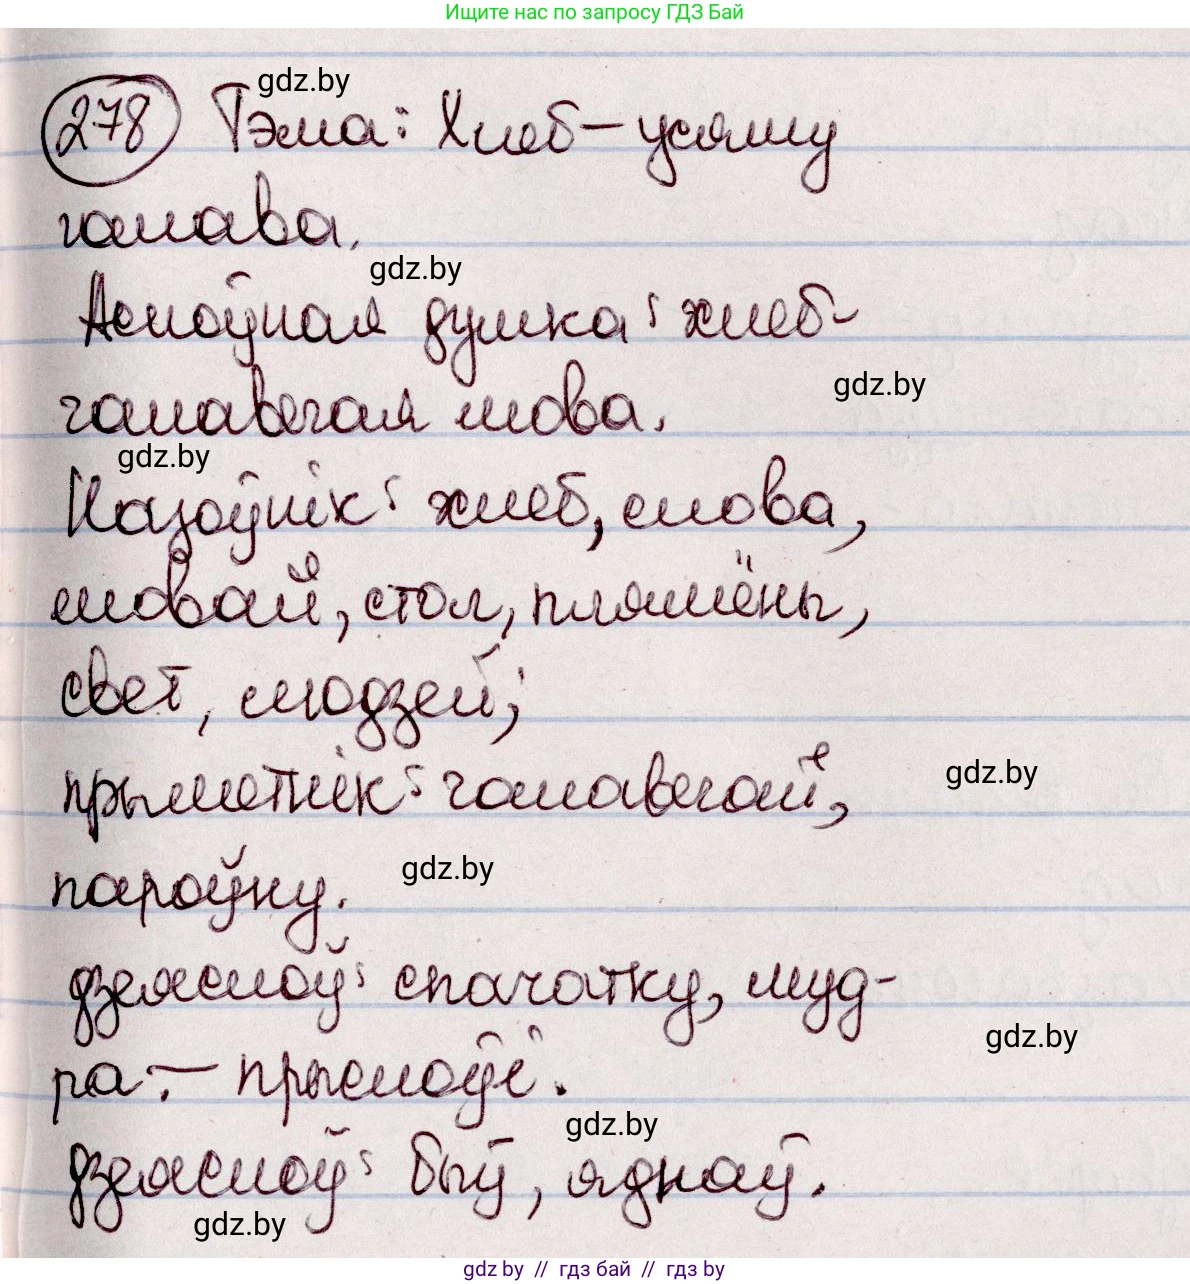 Ищите нас по запросу ГДЗ Бай
gdz.by
278 Тэма: Хлеб – усяму
галава.
gdz.by
Асноўная думка: хлеб -
галавегая мова.
gdz.by
gdz.by
Назоўнік: хлеб, слова,
мовай, стол, плямёны,
свет, людзей;
прыметнік: чалавечай,
gdz.by
пароўну.
gdz.by
дзеяслоў: спачатку, муд-
ра – прыслоўі.
gdz.by
gdz.by
дзеяслоў: быў, яднаў.
gdz.by
gdz.by // гдз бай // gdz.by